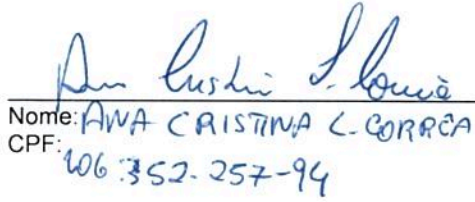 Ana Cristina L. Corrêa
Nome: ANA CRISTINA L. CORREA
CPF:
106.352.257-94